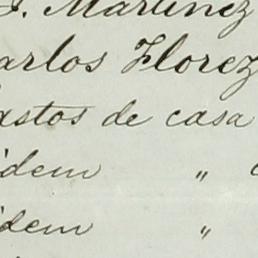 J. Martinez
arlos Florez
astos de casa
idem "
idem "